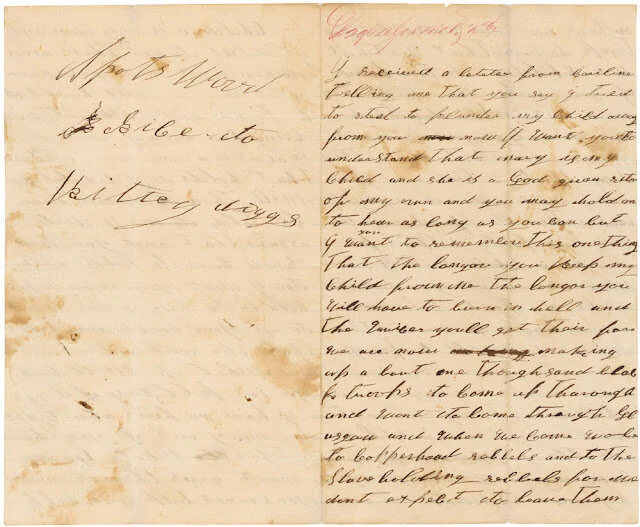 Spots Wood
Rice to
Kittey diggs
I received a leteter from Cariline
telling me that you say I tried
to steal to plunder my child away
from you now I want you to
understand that mary is my
Child and she is a God given rite
of my own and you may hold on
to hear as long as you can but
I want you to remember this one thing
that the longor you keep my
Child from me the longor you
will have to burn in hell and
the qwicer youll get their for
we are now making
up a bout one thoughsand blac
k troops to Come up tharough
and want to Come through Gl
asgow and when we come wo be
to Copperhood rabbels and to the
Slaveholding rebbels for we
dont expect to leave them